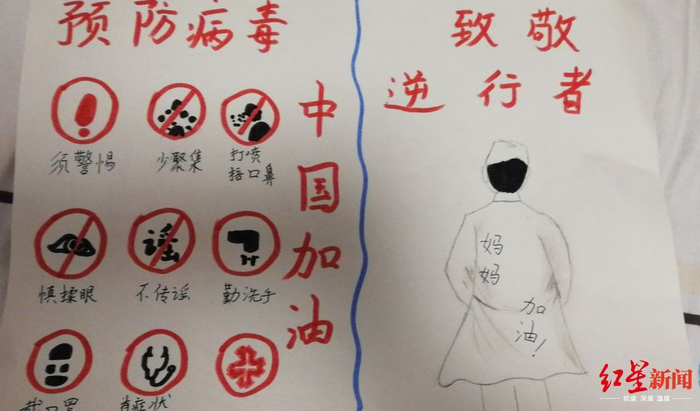 预防病毒
须警惕
少聚集
打喷
捂口鼻
慎揉眼
谣
不传谣
勤洗手
戴口罩
有症状
中国加油
致敬
逆行者
妈妈
加油!
红星新闻
锐度 深度 温度